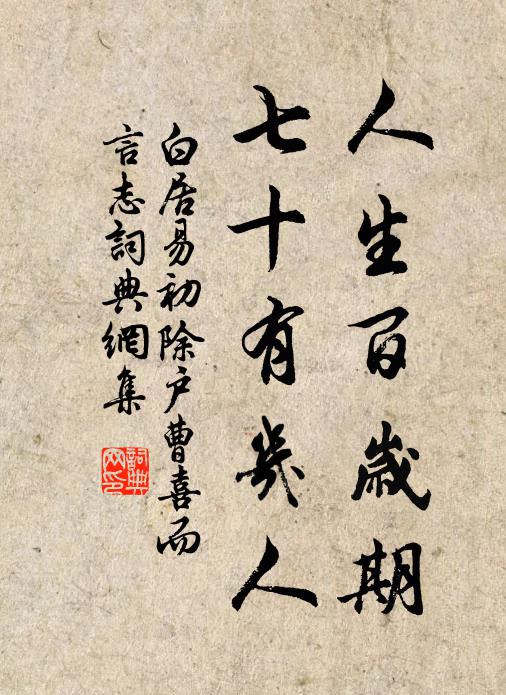 人生百歲期
七十有幾人
白居易初除戶曹喜而
言志詞典網集
詞典
网印